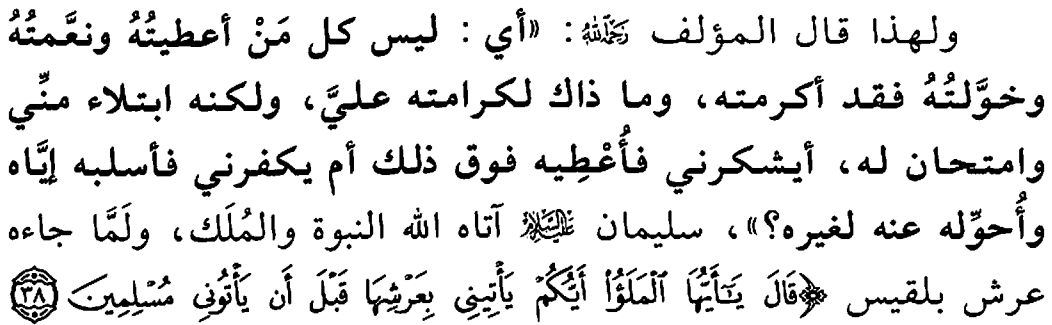 ولهذا قال المؤلف رَحِمَهُ اللَّهُ: «أي: ليس كل مَنْ أعطيتُهُ ونعَّمتُهُ
وخوَّلتُهُ فقد أكرمته، وما ذاك لكرامته عليَّ، ولكنه ابتلاء منِّي
وامتحان له، أيشكرني فأُعْطِيه فوق ذلك أم يكفرني فأسلبه إيَّاه
وأُحوِّله عنه لغيره؟»، سليمان عَلَيْهِ السَّلَامُ آتاه الله النبوة والمُلَك، ولَمَّا جاءه
عرش بلقيس ﴿قَالَ يَٰٓأَيُّهَا ٱلْمَلَؤُا۟ أَيُّكُمْ يَأْتِينِى بِعَرْشِهَا قَبْلَ أَن يَأْتُونِى مُسْلِمِينَ ٣٨